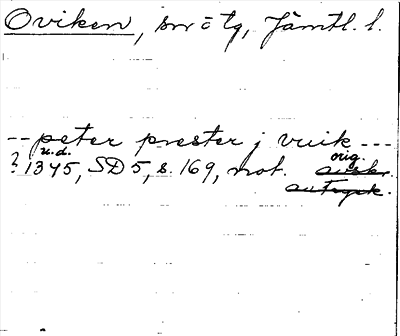 Oviken, sn o tg, Jämtl. l.
-- peter prester j vviik ---
u.d. orig.
? 1345, SD 5, s. 169, not. avskr.
avtryck.